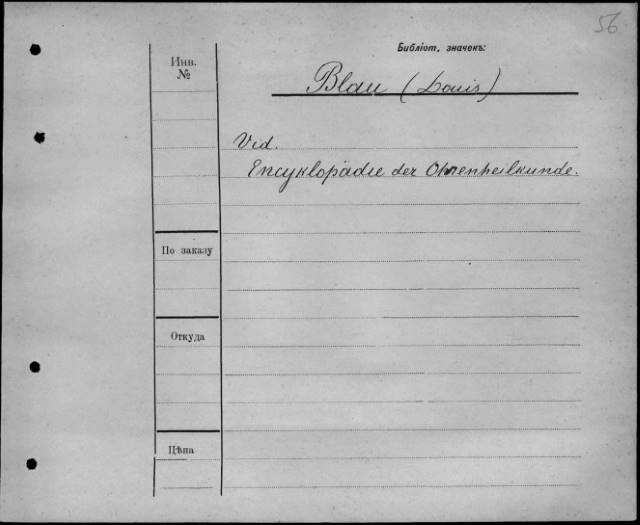 56
Библіот. значекъ:
Инв.
№
Blau (Louis)
Vid.
Encyklopädie der Ohrenheilkunde.
По заказу
Откуда
Цѣна